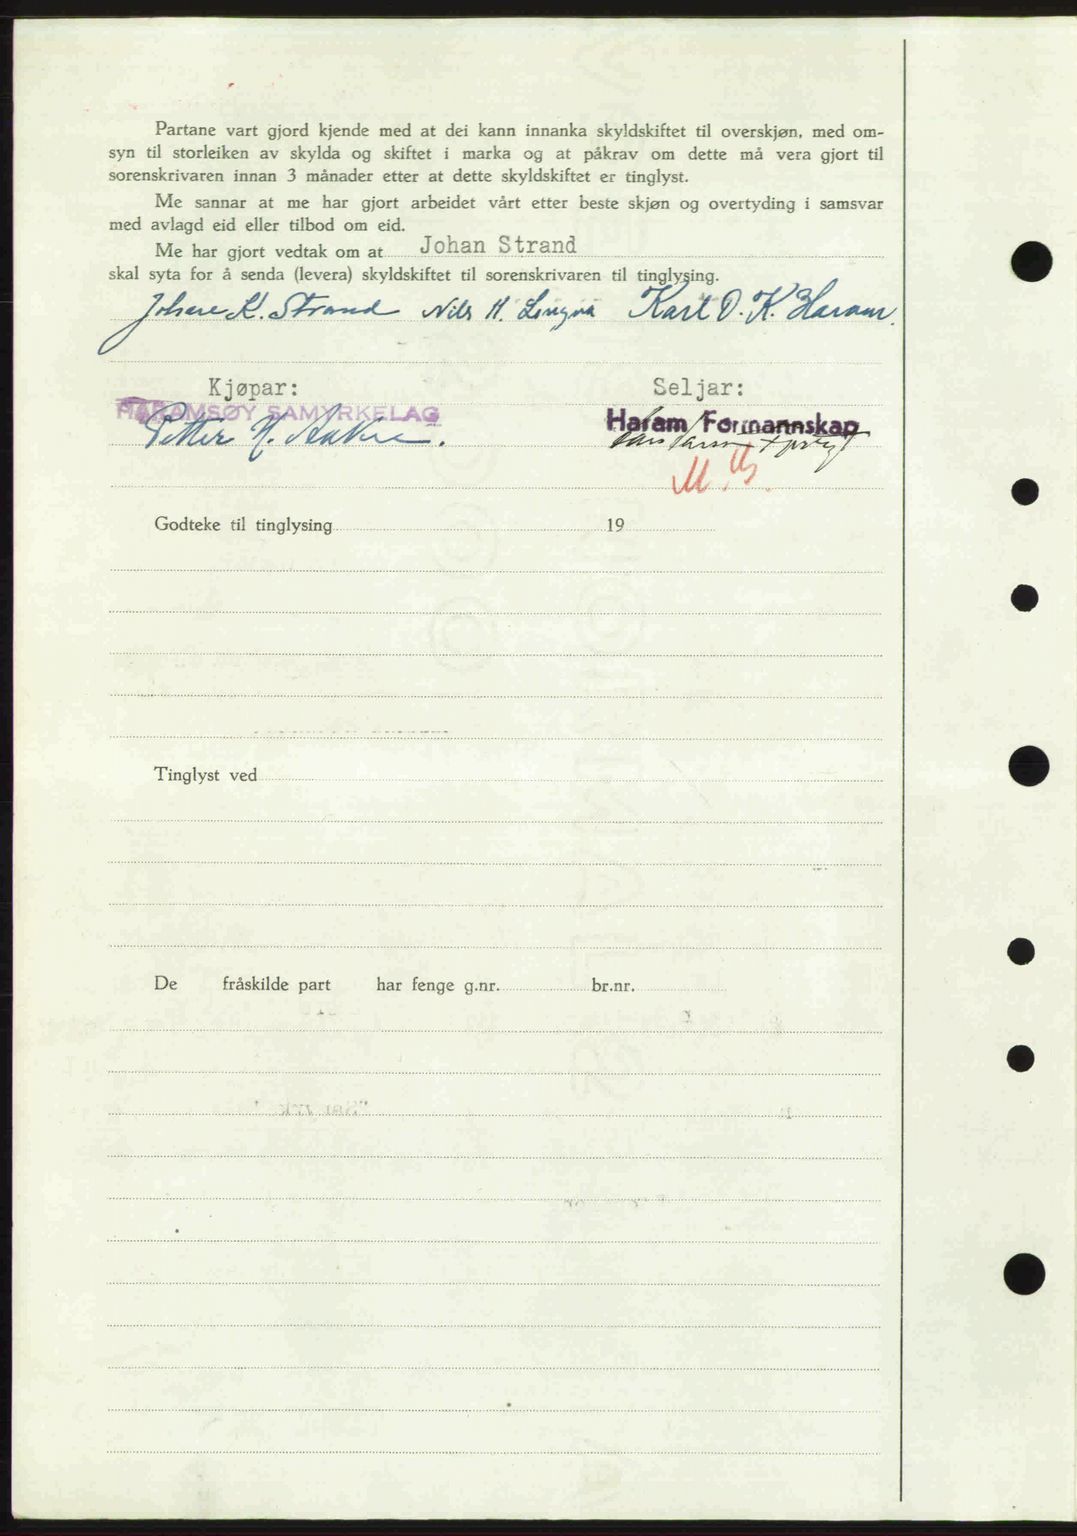 Partane vart gjord kjende med at dei kann innanka skyldskiftet til overskjøn, med om-
syn til storleiken av skylda og skiftet i marka og at påkrav om dette må vera gjort til
sorenskrivaren innan 3 månader etter at dette skyldskiftet er tinglyst.
Me sannar at me har gjort arbeidet vårt etter beste skjøn og overtyding i samsvar
med avlagd eid eller tilbod om eid.
Me har gjort vedtak om at Johan Strand
skal syta for å senda (levera) skyldskiftet til sorenskrivaren til tinglysing.
Johan K. Strand Nils H. Longva Karl O. K. Haram.
Kjøpar: Seljar:
HARAMSØY SAMYRKELAG Haram Formannskap
Petter N.
Godteke til tinglysing 19
Tinglyst ved
De fråskilde part har fenge g.nr. br.nr.